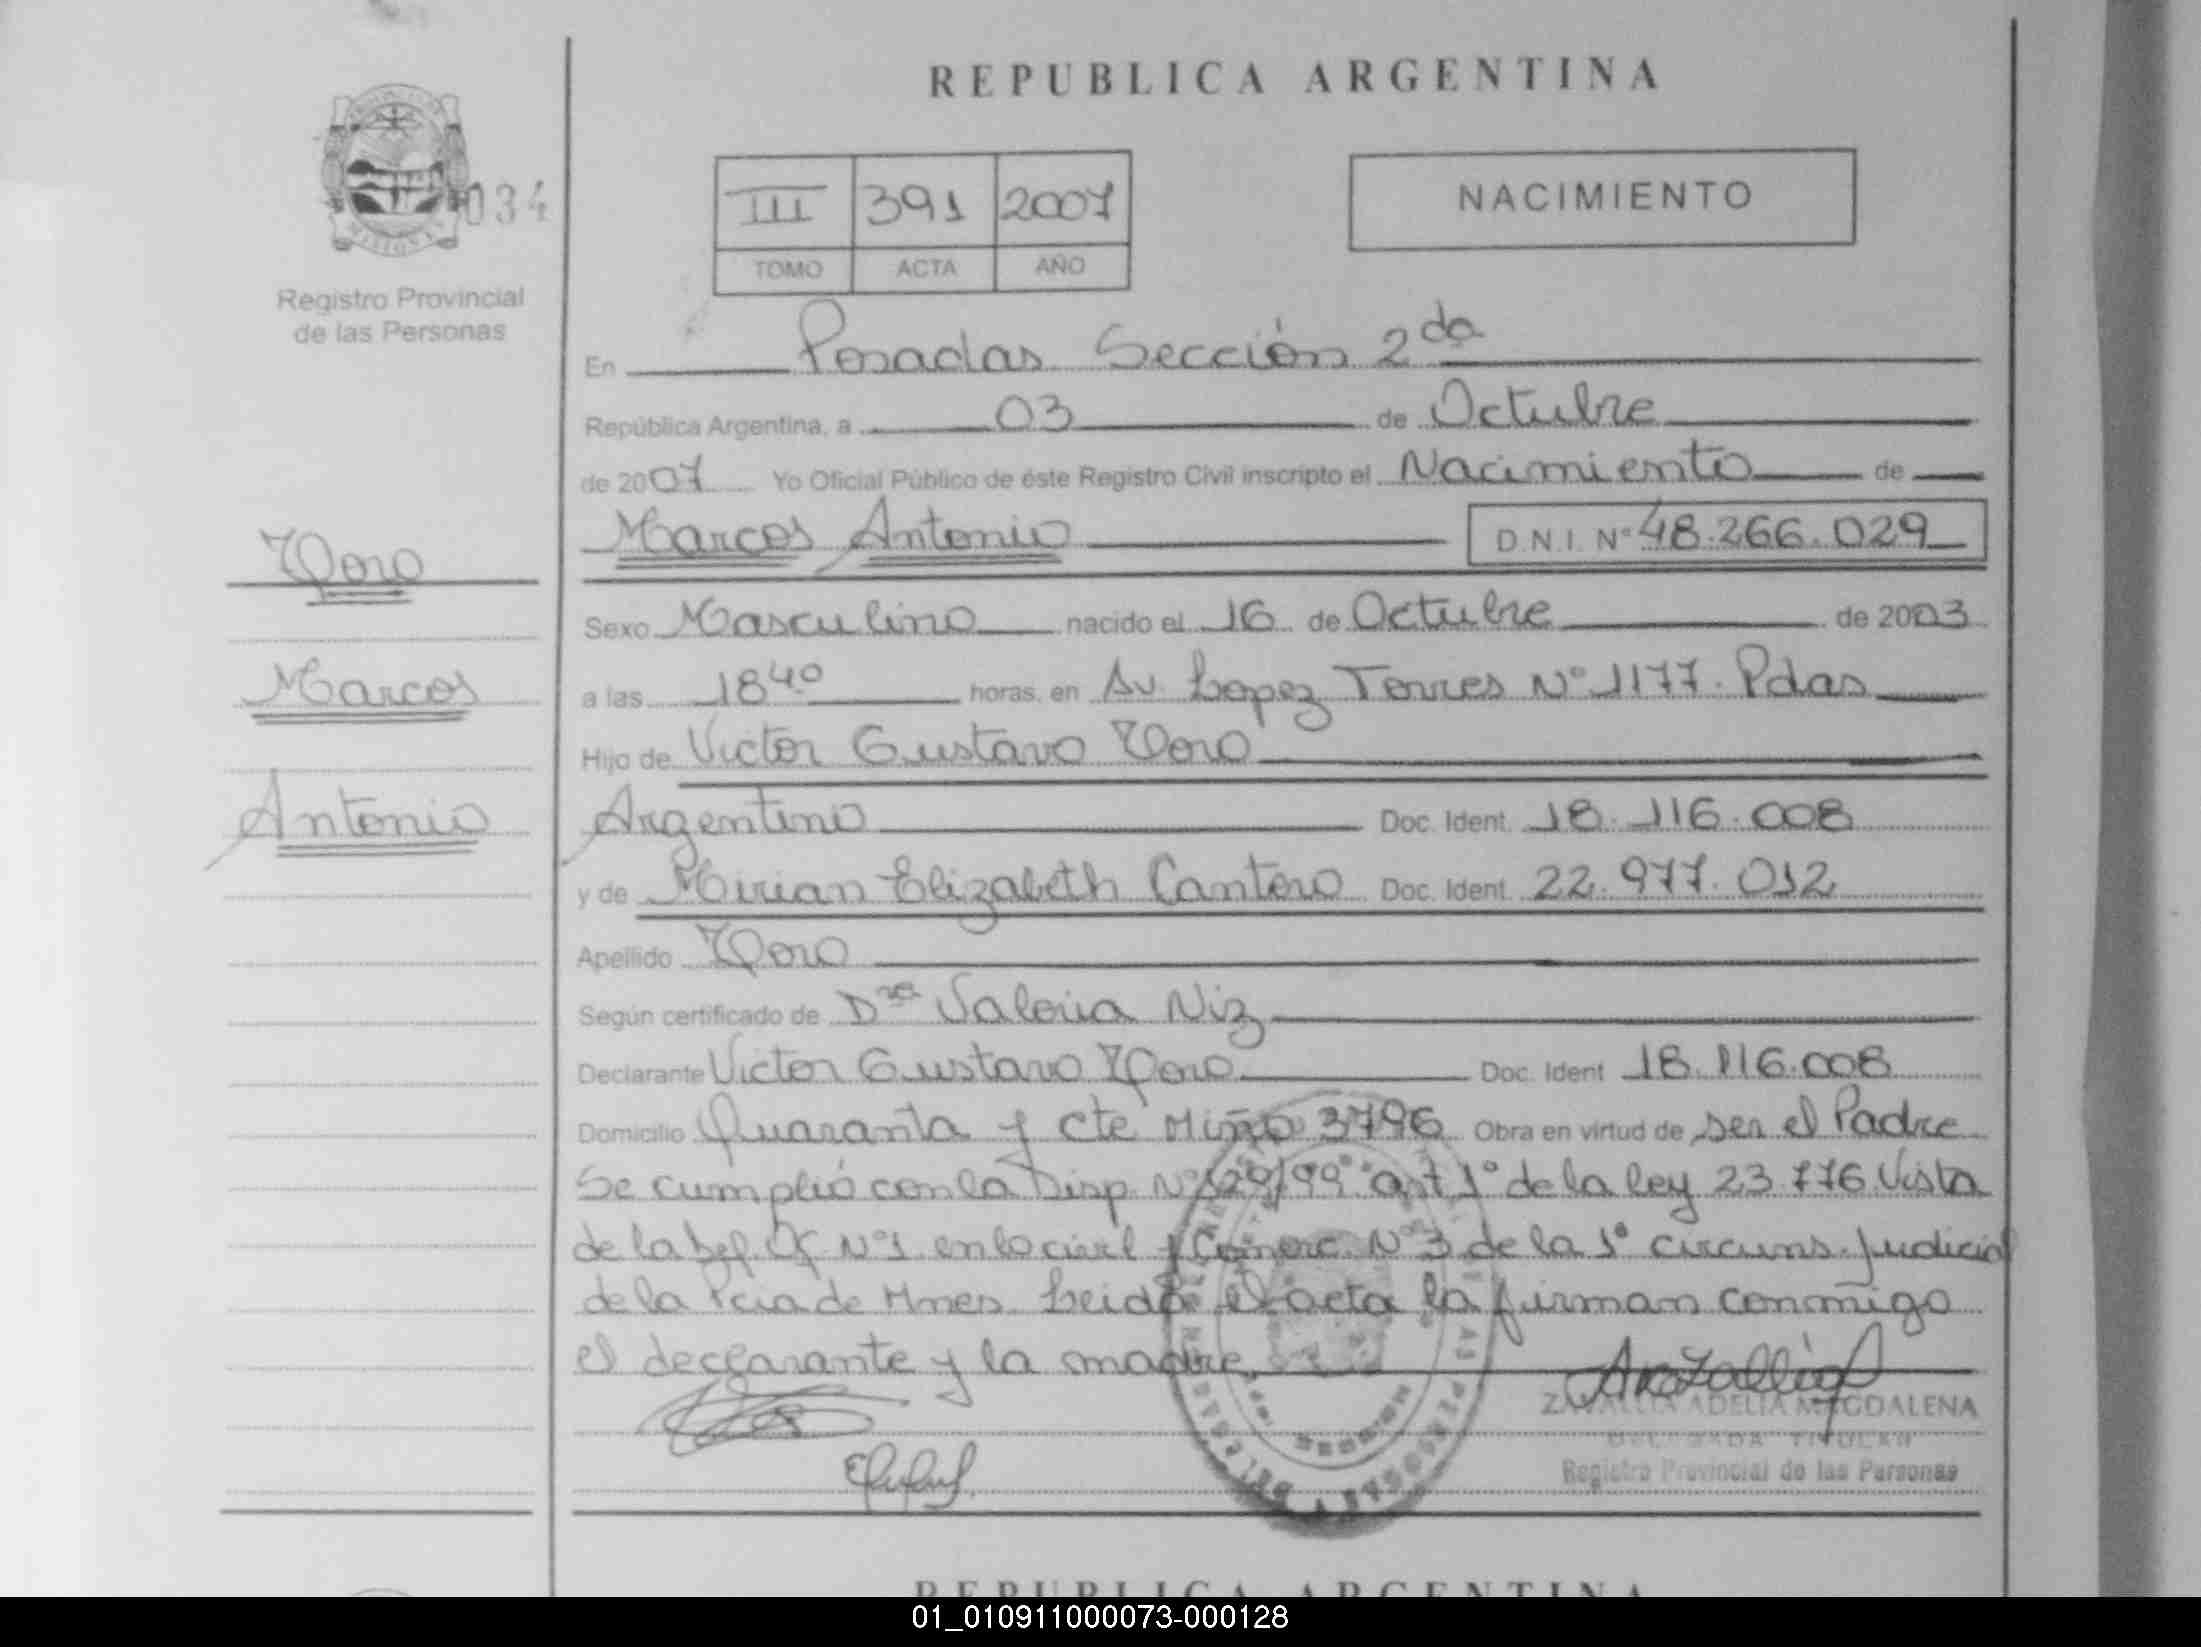 REPUBLICA ARGENTINA
034
MISIONES
Registro Provincial
de las Personas
III 391 2007
TOMO ACTA AÑO
NACIMIENTO
En Posadas Sección 2da
República Argentina, a 03 de Octubre
de 2007 Yo Oficial Público de éste Registro Civil inscripto el Nacimiento de
Marcos Antonio D.N.I. Nº 48.266.029
Toro
Marcos
Antonio
Sexo Masculino nacido el 16 de Octubre de 2003
a las 18 40 horas, en Av. Lopez Torres Nº 1177. Pdas
Hijo de Victor Gustavo Toro
Argentino Doc. Ident. 18.116.008
y de Mirian Elizabeth Cantero Doc. Ident. 22.977.012
Apellido Toro
Según certificado de Dra Valeria Niz
Declarante Victor Gustavo Toro Doc. Ident 18.116.008
Domicilio Quaranta y Cte Miño 3796 Obra en virtud de ser el Padre
Se cumplió con la Disp. Nº 29/99 art 1º de la ley 23.776 Vista
de la Def. Of. Nº1 en lo civil y Comerc. Nº3 de la 1º circuns. Judicial
de la Pcia de Mnes. Leida el acta la firman conmigo
el declarante y la madre
ZAVALLIA ADELIA MAGDALENA
DELEGADA TITULAR
Registro Provincial de las Personas
REPUBLICA ARGENTINA
01_010911000073-000128